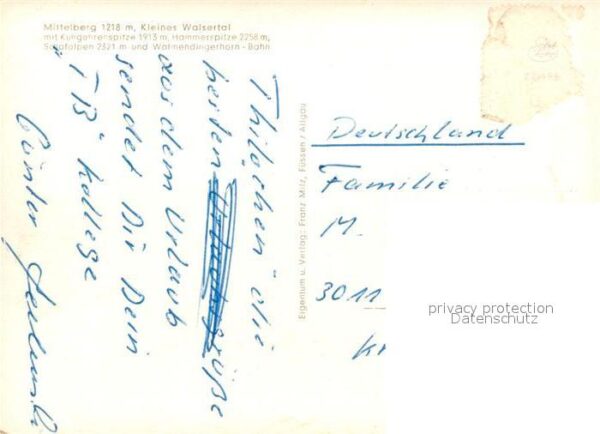 Mittelberg 1218 m, Kleines Walsertal
mit Kungahrenspitze 1913 m, Hammerspitze 2258 m,
Schafalpen 2321 m und Walmendingerhorn - Bahn
Thilochen die
besten Grüße
aus dem Urlaub
sendet Dir Dein
TB Kollege
Günter
Eigentum u. Verlag: Franz Milz, Füssen / Allgäu
Deutschland
Familie
M.
3011
privacy protection
Datenschutz